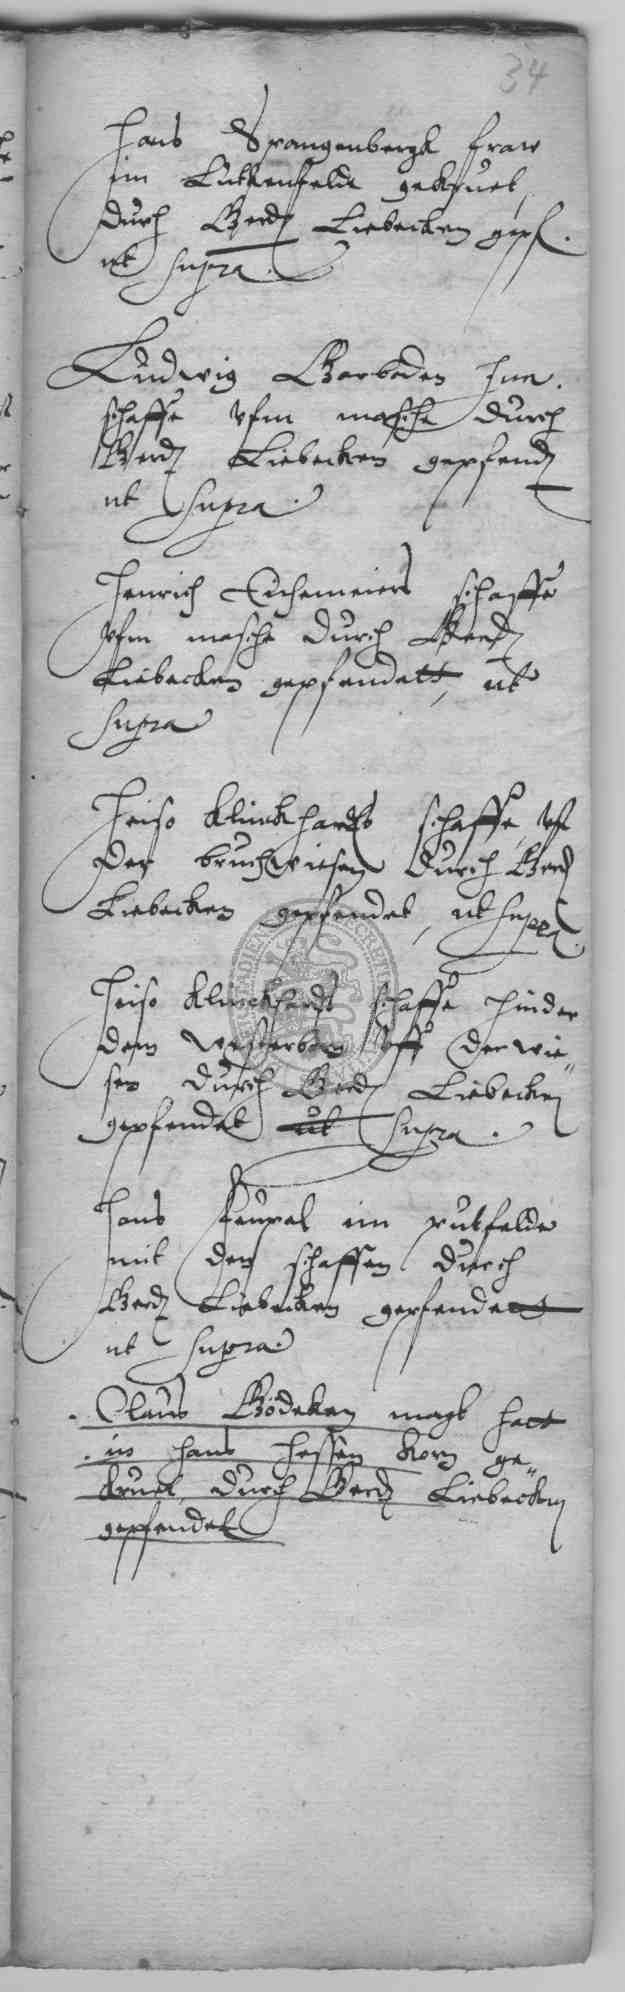 34
Hans Spangenbergk fraw
im Lutkenfelde gekruet,
durch Berdt Liebecken gepf.
ut supra.
Ludwig Garboden
schaffe vfm masche durch
Berdt Liebecken gepfendt
ut supra.
Henrich Tuchemeiers schaffe
vfm masche durch Berdt
Liebecken gepfendett, ut
supra
Heiso Klinckhardts schaffe, vf
der bruchwiesen durch Berdt
Liebecken gepfendet, ut supra.
Heiso Klinckhardts schaffe hinder
dem Westerborn vff der wie„
sen durch Berdt Liebecken
gepfendet ut supra.
Hans im rutfelde
mit den schaffen durch
Berdt Liebecken gepfendett
ut supra.
Claus Bödeken magt hatt
in Hans Hessen korn ge„
kruet, durch Berdt Liebecken
gepfendet